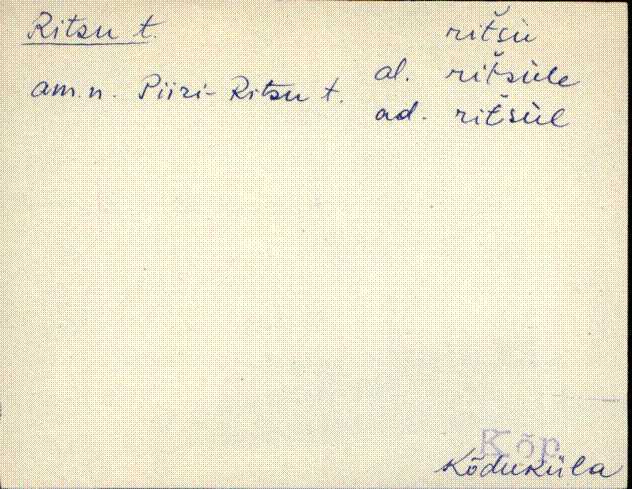 Ritsu t.
am.n. Piiri-Ritsu t.
ritšù
al. ritšùle
ad. ritšùl
Kõp
Kõduküla